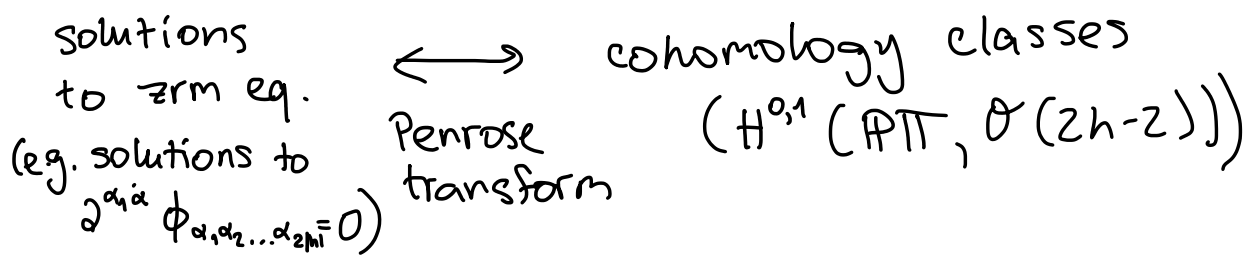 solutions
to zrm eq.
(eg. solutions to
∂^{α₁α̇} ϕ_{α₁α₂...α_{2|h|}} = 0)
⟷
Penrose
transform
cohomology classes
(H^{0,1}(ℙ𝕋, 𝒪(2h-2)))